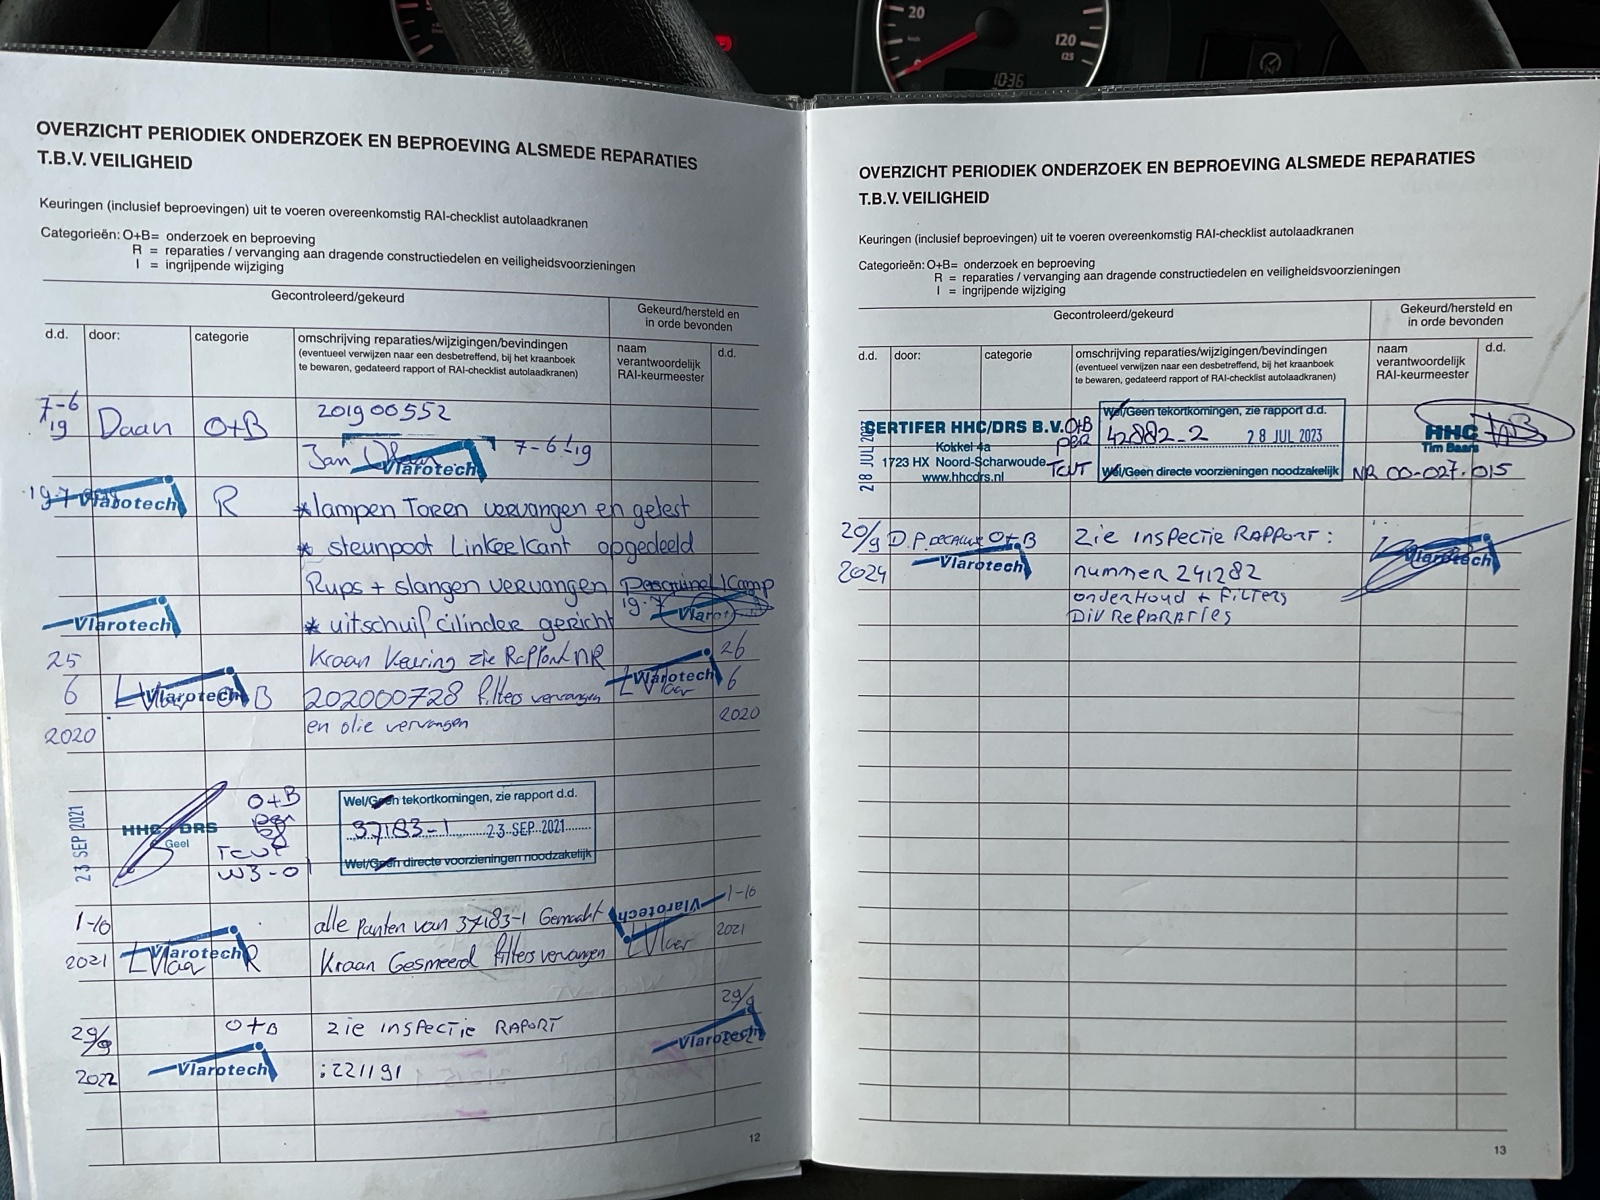 20
120
125
1036
OVERZICHT PERIODIEK ONDERZOEK EN BEPROEVING ALSMEDE REPARATIES
T.B.V. VEILIGHEID
Keuringen (inclusief beproevingen) uit te voeren overeenkomstig RAI-checklist autolaadkranen
Categorieën: O+B= onderzoek en beproeving
R = reparaties / vervanging aan dragende constructiedelen en veiligheidsvoorzieningen
I = ingrijpende wijziging
Gecontroleerd/gekeurd
Gekeurd/hersteld en
in orde bevonden
d.d. door: categorie
omschrijving reparaties/wijzigingen/bevindingen
(eventueel verwijzen naar een desbetreffend, bij het kraanboek
te bewaren, gedateerd rapport of RAI-checklist autolaadkranen)
naam
verantwoordelijk
RAI-keurmeester
d.d.
7-6
19 Daan O+B 201900552
Jan Vlarotech 7-6-19
19-7 Vlarotech R * lampen Toren vervangen en getest
* steunpoot Linkerkant opgedeeld
Rups + slangen vervangen
19-7 Vlarotech
Vlarotech * uitschuif cilinder gericht
25 Kraan Keuring zie Rapport NR 26
6 Vlarotech B 202000728 filters vervangen Vlarotech 6
2020 en olie vervangen 2020
23 SEP 2021
HHC/DRS
Geel
O+B
TCVT
W3-01
Wel/Geen tekortkomingen, zie rapport d.d.
37183-1 23 SEP 2021
Wel/Geen directe voorzieningen noodzakelijk
1-10 alle Punten van 37183-1 Gemaakt Vlarotech 1-10
2021 LVlaar Vlarotech R Kraan Gesmeerd filters vervangen LVlaar 2021
29/9 O+B zie inspectie RAPORT 29/9
2022 Vlarotech : 221191 Vlarotech
12
OVERZICHT PERIODIEK ONDERZOEK EN BEPROEVING ALSMEDE REPARATIES
T.B.V. VEILIGHEID
Keuringen (inclusief beproevingen) uit te voeren overeenkomstig RAI-checklist autolaadkranen
Categorieën: O+B= onderzoek en beproeving
R = reparaties / vervanging aan dragende constructiedelen en veiligheidsvoorzieningen
I = ingrijpende wijziging
Gecontroleerd/gekeurd
Gekeurd/hersteld en
in orde bevonden
d.d. door: categorie
omschrijving reparaties/wijzigingen/bevindingen
(eventueel verwijzen naar een desbetreffend, bij het kraanboek
te bewaren, gedateerd rapport of RAI-checklist autolaadkranen)
naam
verantwoordelijk
RAI-keurmeester
d.d.
28 JUL 2023
CERTIFER HHC/DRS B.V.
Kokkel 4a
1723 HX Noord-Scharwoude
www.hhcdrs.nl
O+B
TCVT
Wel/Geen tekortkomingen, zie rapport d.d.
42882-2 28 JUL 2023
Wel/Geen directe voorzieningen noodzakelijk
HHC
Tim Baars
NR 00-027.015
20/9 O+B Zie INSPECTIE RAPPORT:
2024 Vlarotech nummer 241282 Vlarotech
onderHoud + FILTERS
DIV REPARATIES
13